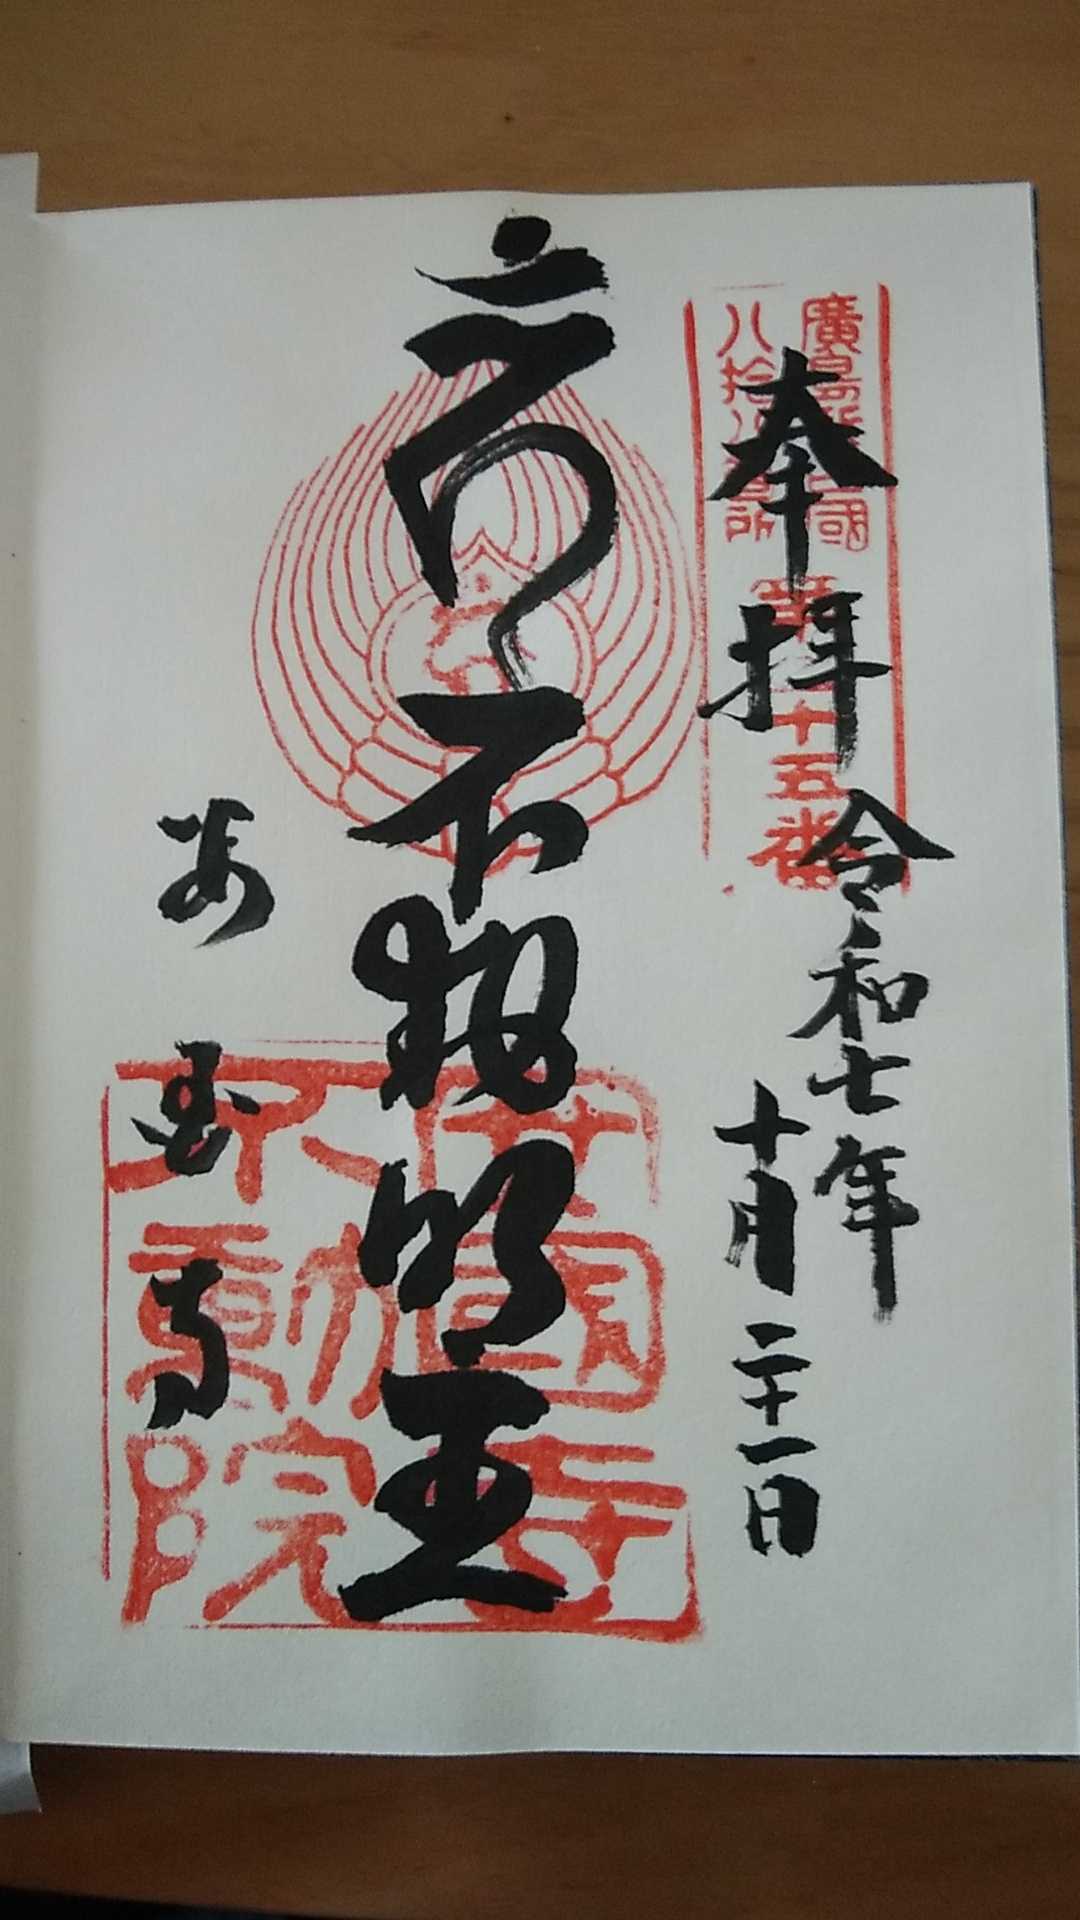 奉拝
令和七年
十月二十一日
不動明王
安国寺
廣島新四國
八拾八ヶ所
十五番
安國寺
不動院